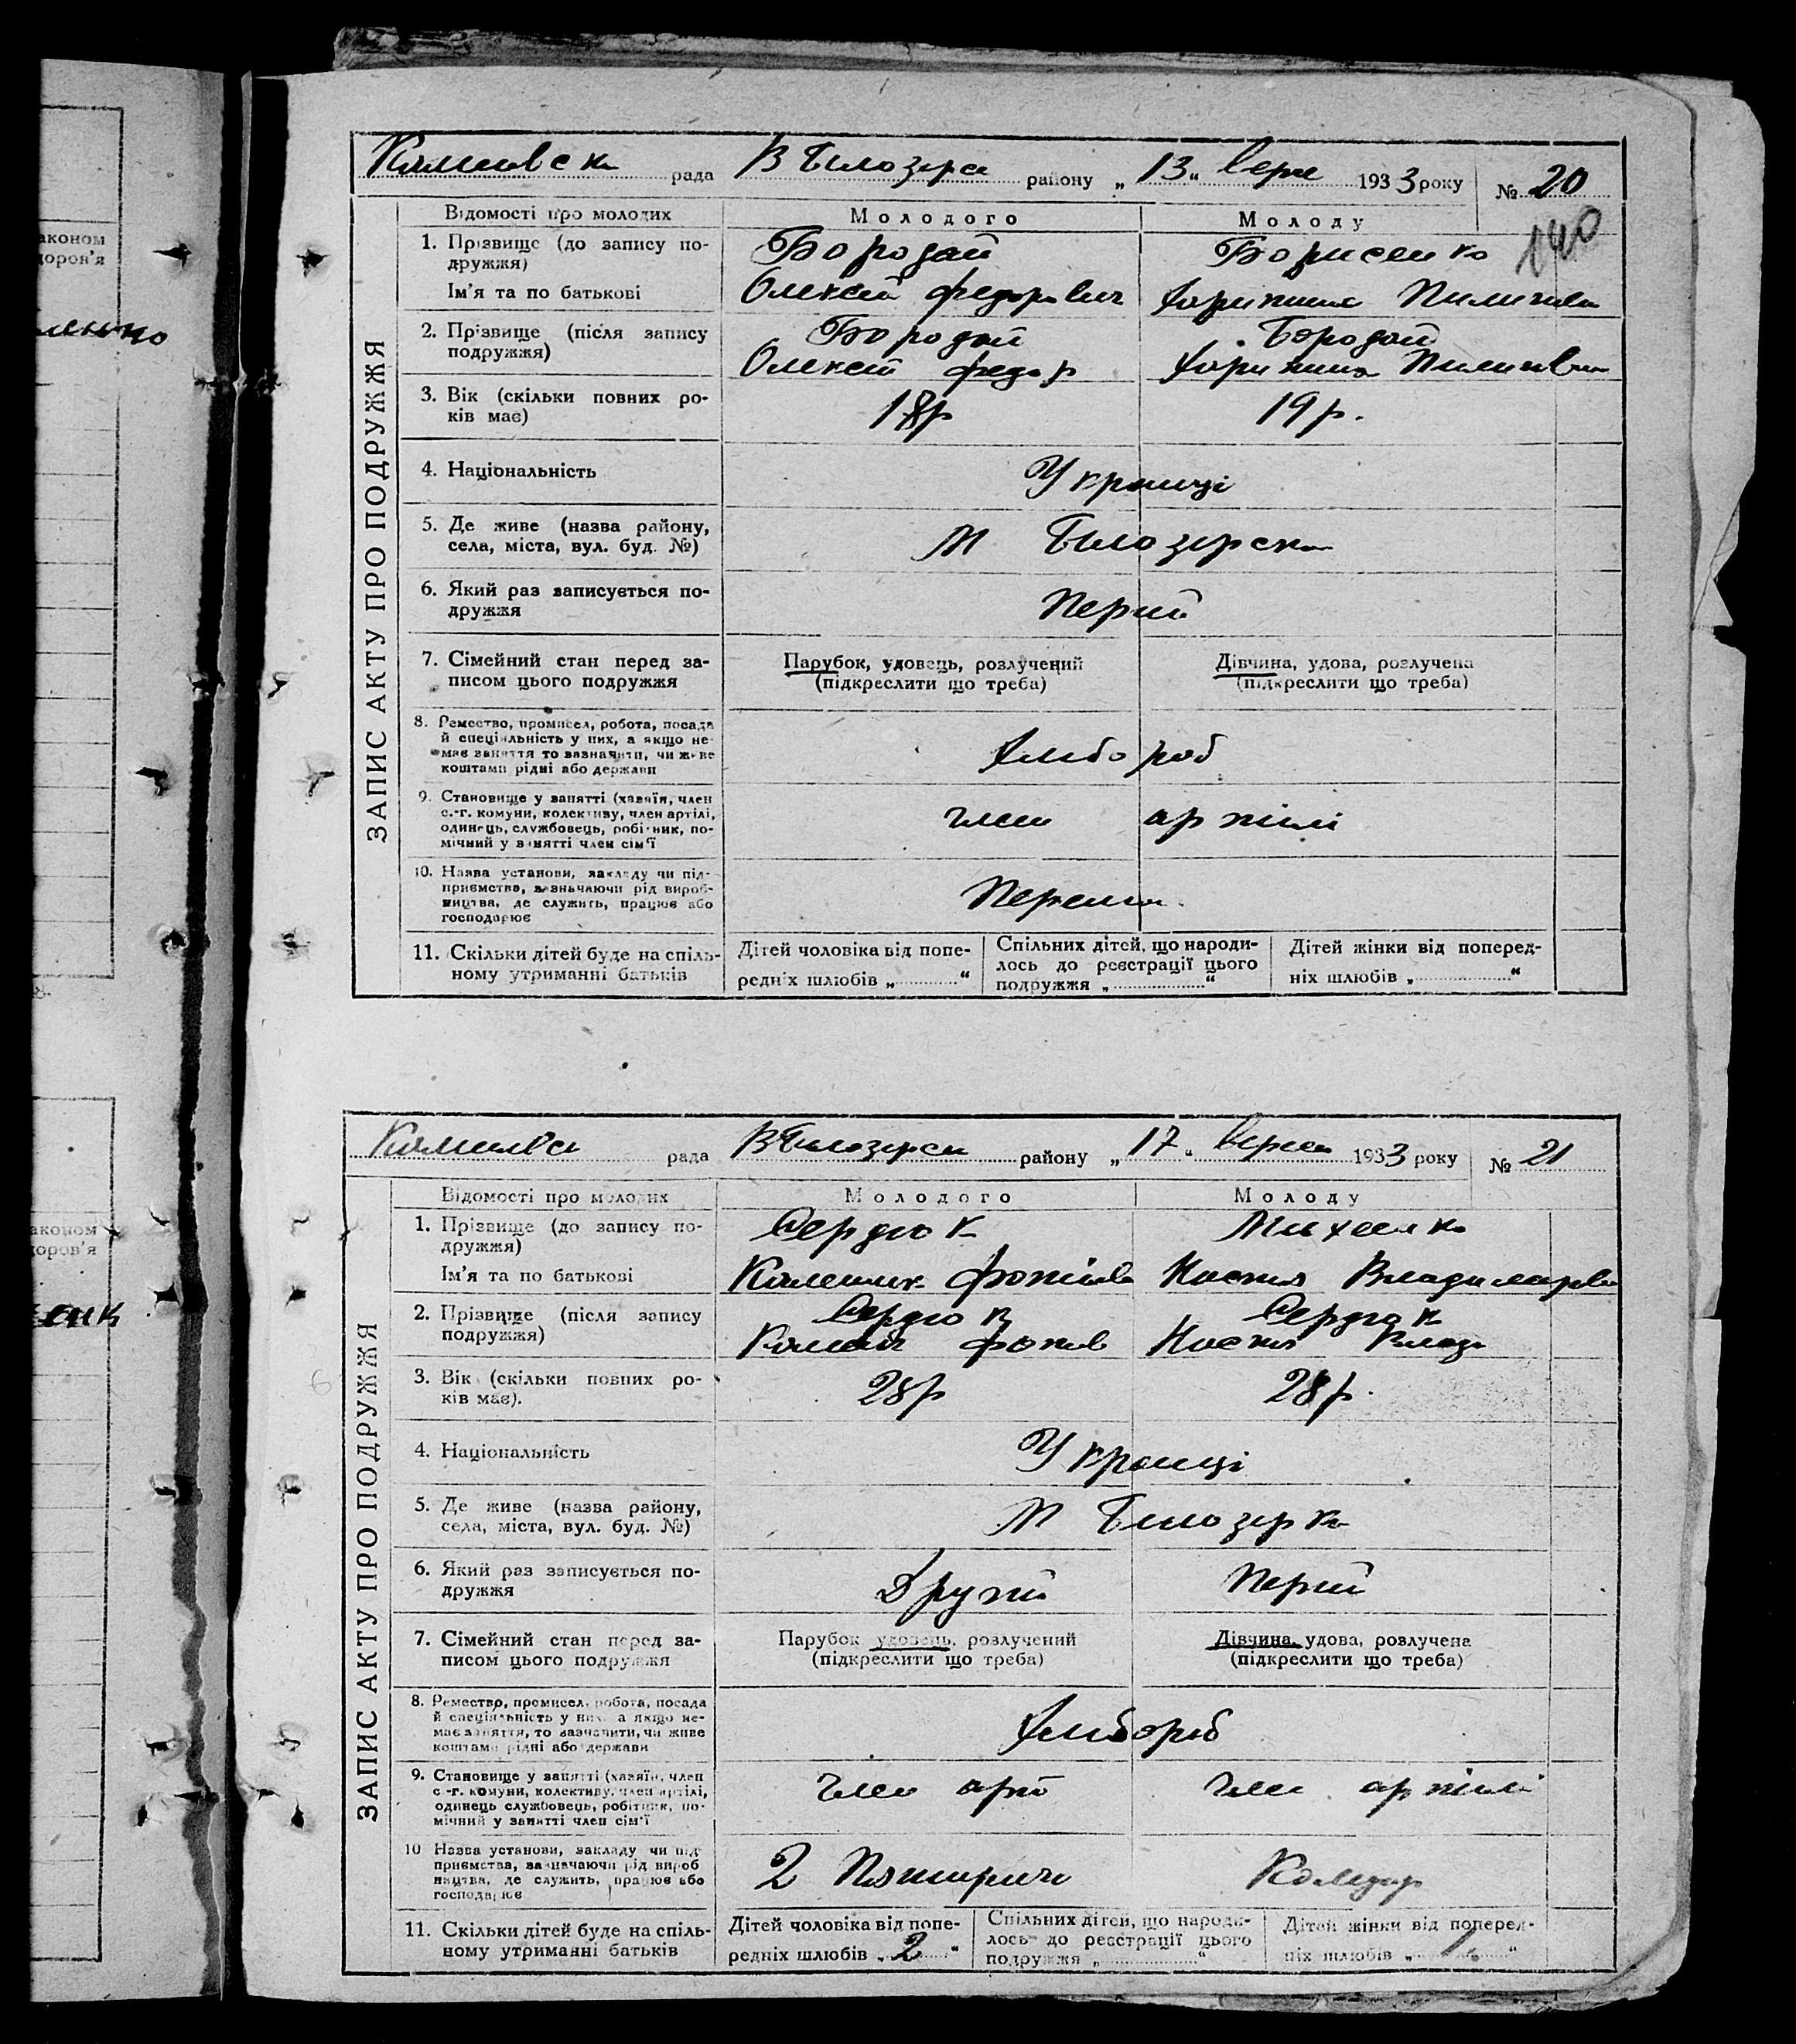 рада В Білозерс району „13„ вере 1933 року № 20
140
Відомості про молодих Молодого Молоду
ЗАПИС АКТУ ПРО ПОДРУЖЖЯ
1. Прізвище (до запису по- Бородай Борисенко
дружжя)
Ім'я та по батькові Олексій Федорович Пилипівн
2. Прізвище (після запису Бородай Бородай
подружжя) Олексій Федор
3. Вік (скільки повних ро- 18р 19р.
ків має)
4. Національність Українці
5. Де живе (назва району, М Білозерка
села, міста, вул. буд. №)
6. Який раз записується по- Перший
дружжя
7. Сімейний стан перед за- Парубок, удовець, розлучений Дівчина, удова, розлучена
писом цього подружжя (підкреслити що треба) (підкреслити що треба)
8. Ремество, промисел, робота, посада
й спеціяльність у них, а якщо не-
має заняття то зазначити, чи живе
коштами рідні або держави
9. Становище у занятті (хазяїн, член член артілі
с.-г. комуни, колективу, член артілі,
одинець, службовець, робітник, по-
мічний у занятті член сім'ї
10. Назва установи, закладу чи під-
приємства, зазначаючи рід вироб-
ництва, де служить, працює або
господарює
11. Скільки дітей буде на спіль- Дітей чоловіка від попе- Спільних дітей, що народи- Дітей жінки від поперед-
ному утриманні батьків редніх шлюбів „ “ лось до реєстрації цього ніх шлюбів „ “
подружжя „ “
рада В Білозерск району „17„ верес 1933 року № 21
Відомості про молодих Молодого Молоду
ЗАПИС АКТУ ПРО ПОДРУЖЖЯ
1. Прізвище (до запису по- Сердюк Михеенко
дружжя)
Ім'я та по батькові Настя Владимирів
2. Прізвище (після запису Сердюк Сердюк
подружжя) Настя Влади
3. Вік (скільки повних ро- 28р 28р.
ків має).
4. Національність Українці
5. Де живе (назва району, М Білозерка
села, міста, вул. буд. №)
6. Який раз записується по- Другий Перший
дружжя
7. Сімейний стан перед за- Парубок удовець, розлучений Дівчина, удова, розлучена
писом цього подружжя (підкреслити що треба) (підкреслити що треба)
8. Ремество, промисел, робота, посада
й спеціяльність у них, а якщо не-
має заняття, то зазначити, чи живе
коштами рідні або держави
9. Становище у занятті (хазяїн, член член арт член артілі
с-г. комуни, колективу, член артілі,
одинець службовець, робітник, по-
мічний у занятті член сім'ї
10 Назва установи, закладу чи під 2 Пятирич
приємства, зазначаючи рід вироб
ництва, де служить, працює або
господарює
11. Скільки дітей буде на спіль- Дітей чоловіка від попе- Спільних дітей, що народи- Дітей жінки від поперед-
ному утриманні батьків редніх шлюбів „2“ лось до реєстрації цього ніх шлюбів „1“
подружжя „ “